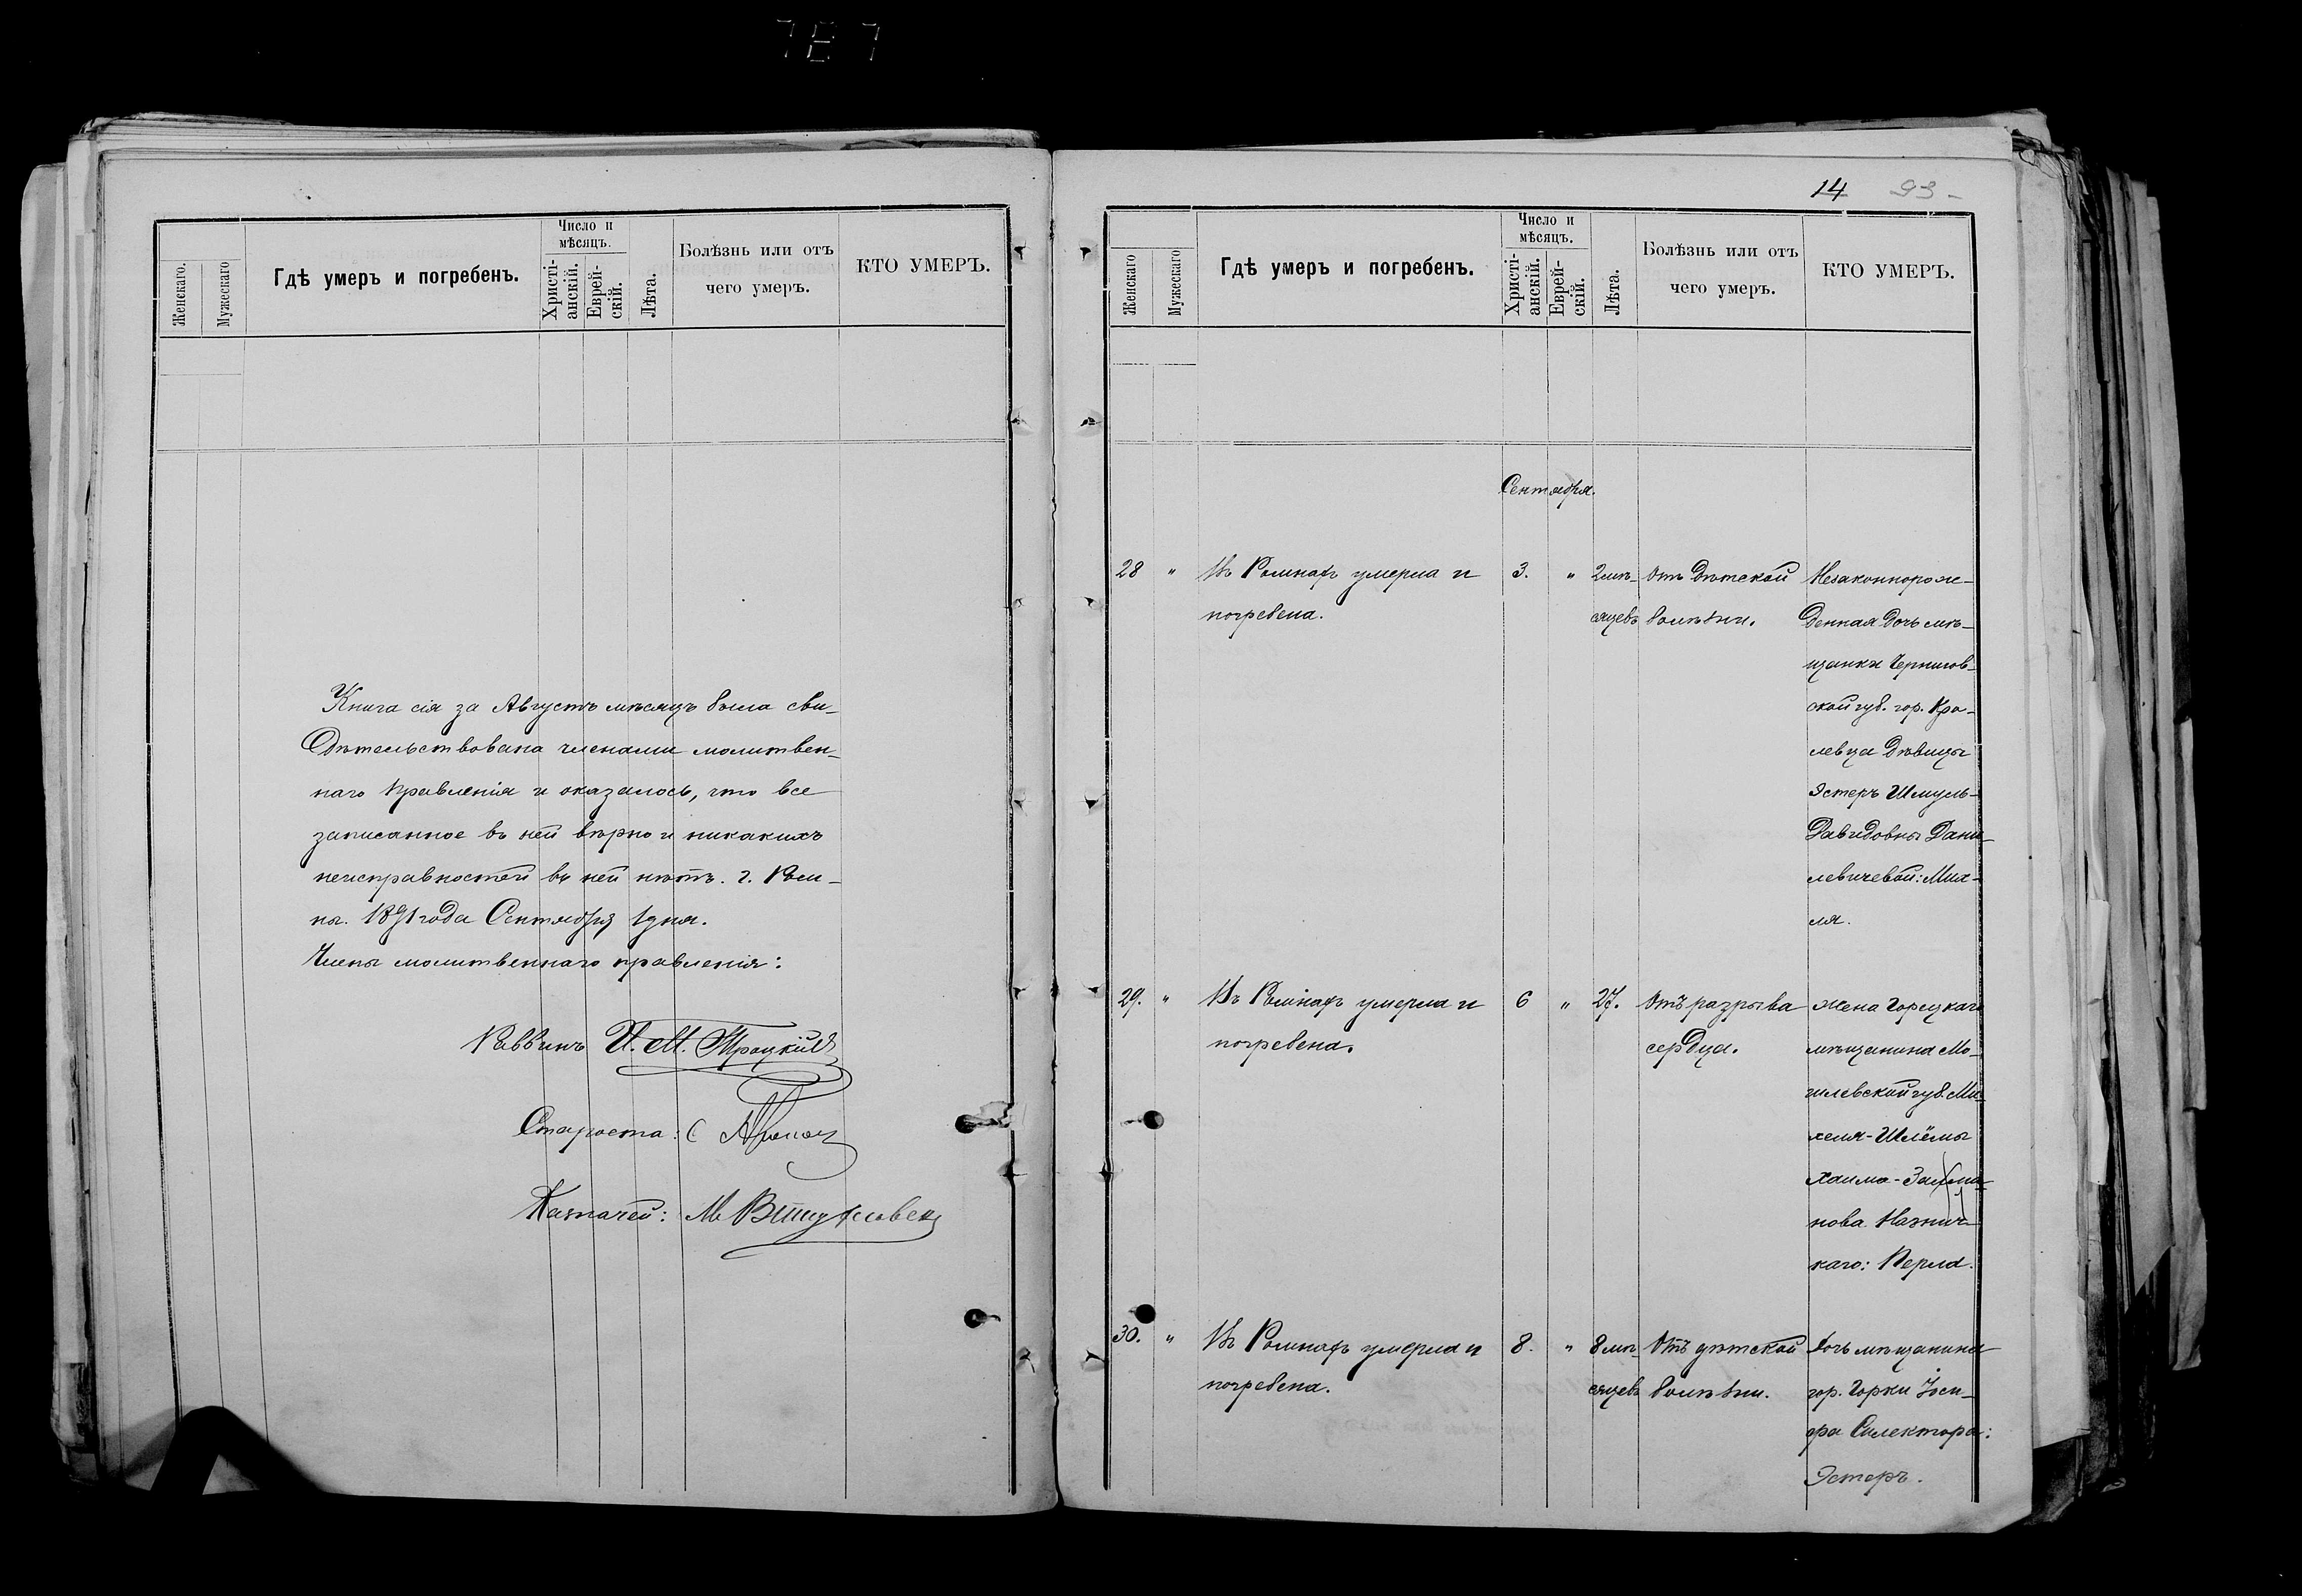 787
Женскаго.
Мужескаго
Гдѣ умеръ и погребенъ.
Число и
мѣсяцъ.
Христі-
анскій.
Еврей-
скій.
Лѣта.
Болѣзнь или отъ
чего умеръ.
КТО УМЕРЪ.
Книга сія за Августъ мѣсяцъ была сви-
дѣтельствована членами молитвен-
наго правленія и оказалось, что все
записанное въ ней вѣрно и никакихъ
неисправностей въ ней нѣтъ. г. Ром-
ны. 1891 года Сентября 1 дня.
Члены молитвеннаго правленія:
Раввинъ И. М. Троцкій
Староста: С
Казначей: М
14 93-
Женскаго
Мужескаго
Гдѣ умеръ и погребенъ.
Число и
мѣсяцъ.
Христі-
анскій.
Еврей-
скій.
Лѣта.
Болѣзнь или отъ
чего умеръ.
КТО УМЕРЪ.
Сентября.
28 " Въ Ромнахъ умерла и 3. " 2 мѣ- Отъ дѣтской Незаконнорож-
погребена. сяцевъ болѣзни. денная дочь мѣ-
щанки Чернигов-
ской губ. гор. Кро-
левца дѣвицы
Эстеръ Шмуль-
Давидовны Дани-
левичевой: Миа-
ля.
29. " Въ Ромнахъ умерла и 6 " 27. Отъ разрыва Жена Горецкаго
погребена. сердца. мѣщанина Мо-
гилевской губ. Ми-
хеля-Шлёмы
Хаима-
нова
каго: Перла.
30. " Въ Ромнахъ умерла и 8. " 8 мѣ- Отъ дѣтской Дочь мѣщанина
погребена. сяцевъ болѣзни. гор. Горки Іоси-
фа Силектора:
Эстеръ.